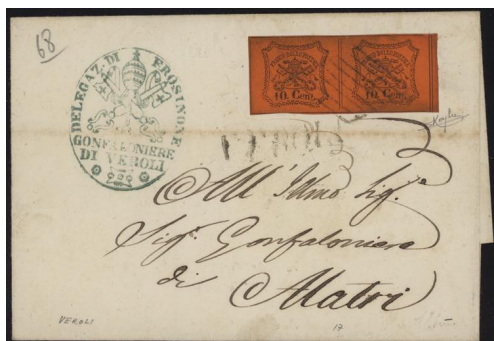 68
DELEGAZ. DI FROSINONE
GONFALONIERE
DI VEROLI
10 Cent. 10 Cent.
VEROLI
All' Illmo Sig.e
Sig. Gonfaloniere
di
Alatri
VEROLI
17